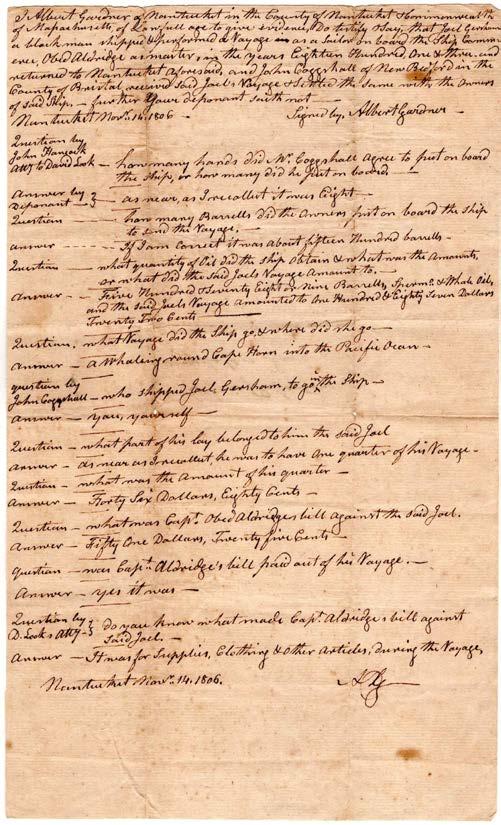 I Albert Gardner of Nantucket in the County of Nantucket & Commonwealth
of Massachusetts, of Lawfull age to give evidence, Do testify & say, that Joel Gersham
a black man shipped & performed a Voyage as a Sailor on board the Ship
Obed Aldridge as master, in the years Eighteen Hundred, One & three, and
returned to Nantucket Aforesaid, and John Coggshall of New Bedford in the
County of Bristol, received said Joel's Voyage & settled the same with the Owners
of said Ship. — further your deponant saith not —
Nantucket Novr. 14. 1806 Signed by, Albert Gardner
Question by
John Hancock
Atty to David Look — how many hands did Mr. Coggshall agree to put on board
the ship, or how many did he put on board. —
Answer by
Deponant — as near, as I recollect it was Eight —
Question — how many Barrells did the Owners put on board the ship
to said the Voyage. —
answer — If I am correct it was about fifteen Hundred barrells —
Question — what quantity of Oil did the ship Obtain & what was the amount,
or what did the said Joels Voyage Amount to. —
Answer — Five Hundred & Seventy Eight or Nine Barrells, Sperms. & Whale Oil,
and the said Joels Voyage amounted to One Hundred & Eighty Seven Dollars
Twenty Two Cents —
Question, what Voyage did the Ship go, & where did she go —
Answer — a Whaleing round Cape Horn into the Pacific Ocean —
question by
John Coggshall — who shipped Joel Gersham, to go in the Ship —
answer — you, yourself —
Question — what part of his lay belonged to him the said Joel
answer — as near as I recollect, he was to have One quarter of his Voyage —
Question — what was the Amount of his quarter —
Answer — Forty Six Dollars, Eighty Cents —
Question — what was Capt. Obed Aldridges bill against the said Joel.
Answer — Fifty One Dollars, Twenty five Cents —
question — was Capt. Aldridge's bill paid out of his Voyage. —
Answer — yes it was —
Question by
D. Looks Atty — do you know what made Capt. Aldridges bill against
said Joel. —
Answer — It was for Supplies, Clothing & other Articles, during the Voyage,
Nantucket Novr. 14. 1806. AG